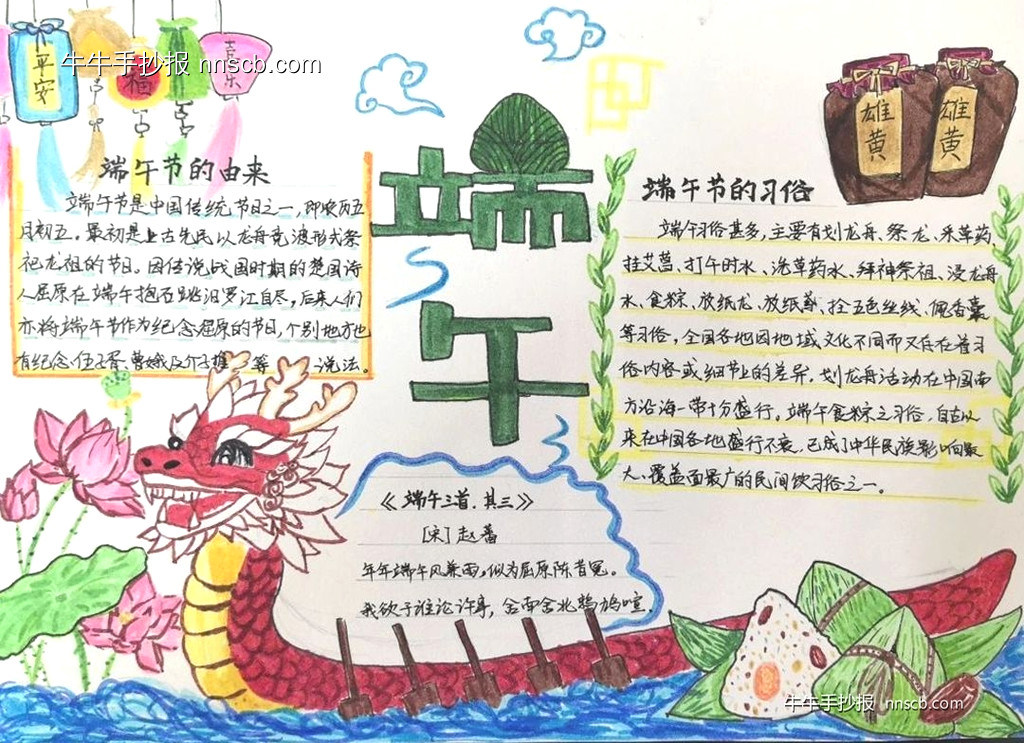 平安
福
喜乐
牛牛手抄报 nnscb.com
端午
雄黄
雄黄
端午节的由来
端午节是中国传统节日之一，即农历五
月初五。最初是上古先民以龙舟竞渡形式祭
祀龙祖的节日。因传说战国时期的楚国诗
人屈原在端午抱石跳汨罗江自尽，后来人们
亦将端午节作为纪念屈原的节日，个别地方也
有纪念伍子胥、曹娥及介子推等 说法。
端午节的习俗
端午习俗甚多，主要有划龙舟、祭龙、采草药、
挂艾菖、打午时水、洗草药水、拜神祭祖、浸龙舟
水、食粽、放纸龙、放纸鸢、拴五色丝线、佩香囊
等习俗，全国各地因地域文化不同而又存在着习
俗内容或细节上的差异。划龙舟活动在中国南
方沿海一带十分盛行。端午食粽之习俗，自古以
来在中国各地盛行不衰，已成了中华民族影响最
大、覆盖面最广的民间饮习俗之一。
《端午三首.其三》
［宋］赵蕃
年年端午风兼雨，似为屈原陈昔冤。
我欲于谁论许事，舍南舍北鹁鸠喧。
牛牛手抄报 nnscb.com